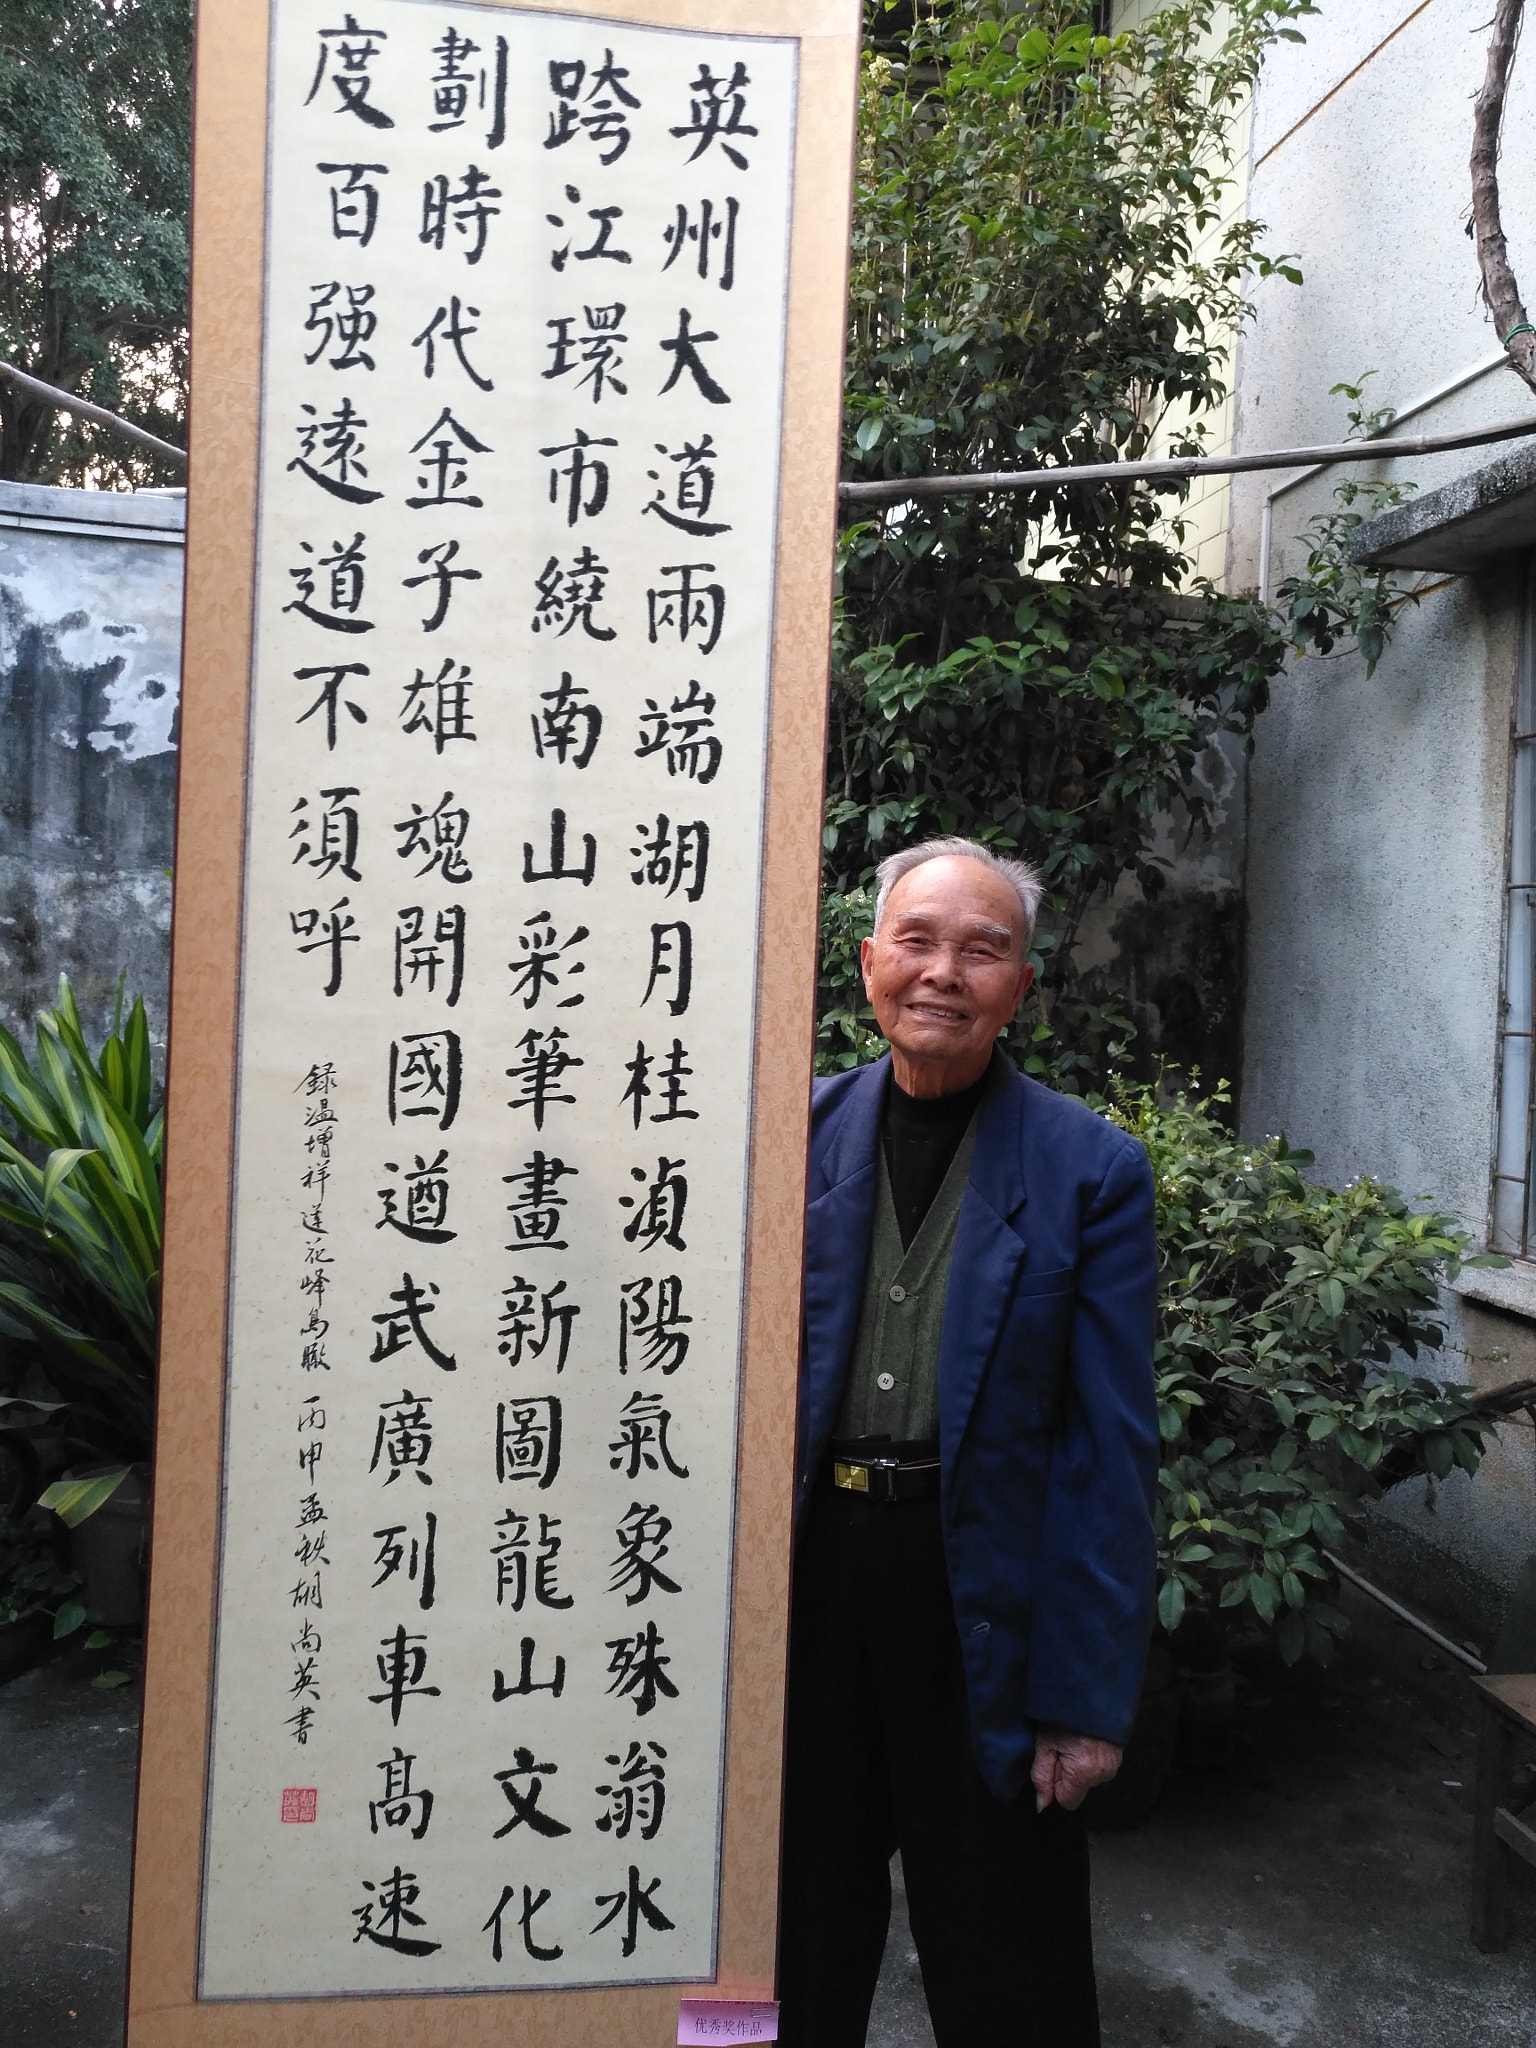 英州大道兩端湖月桂湞陽氣象殊滃水
跨江環市繞南山彩筆畫新圖龍山文化
劃時代金子雄魂開國遒武廣列車高速
度百强遠道不須呼
録温增祥蓮花峰鳥瞰 丙申孟秋胡尚英書
优秀奖作品